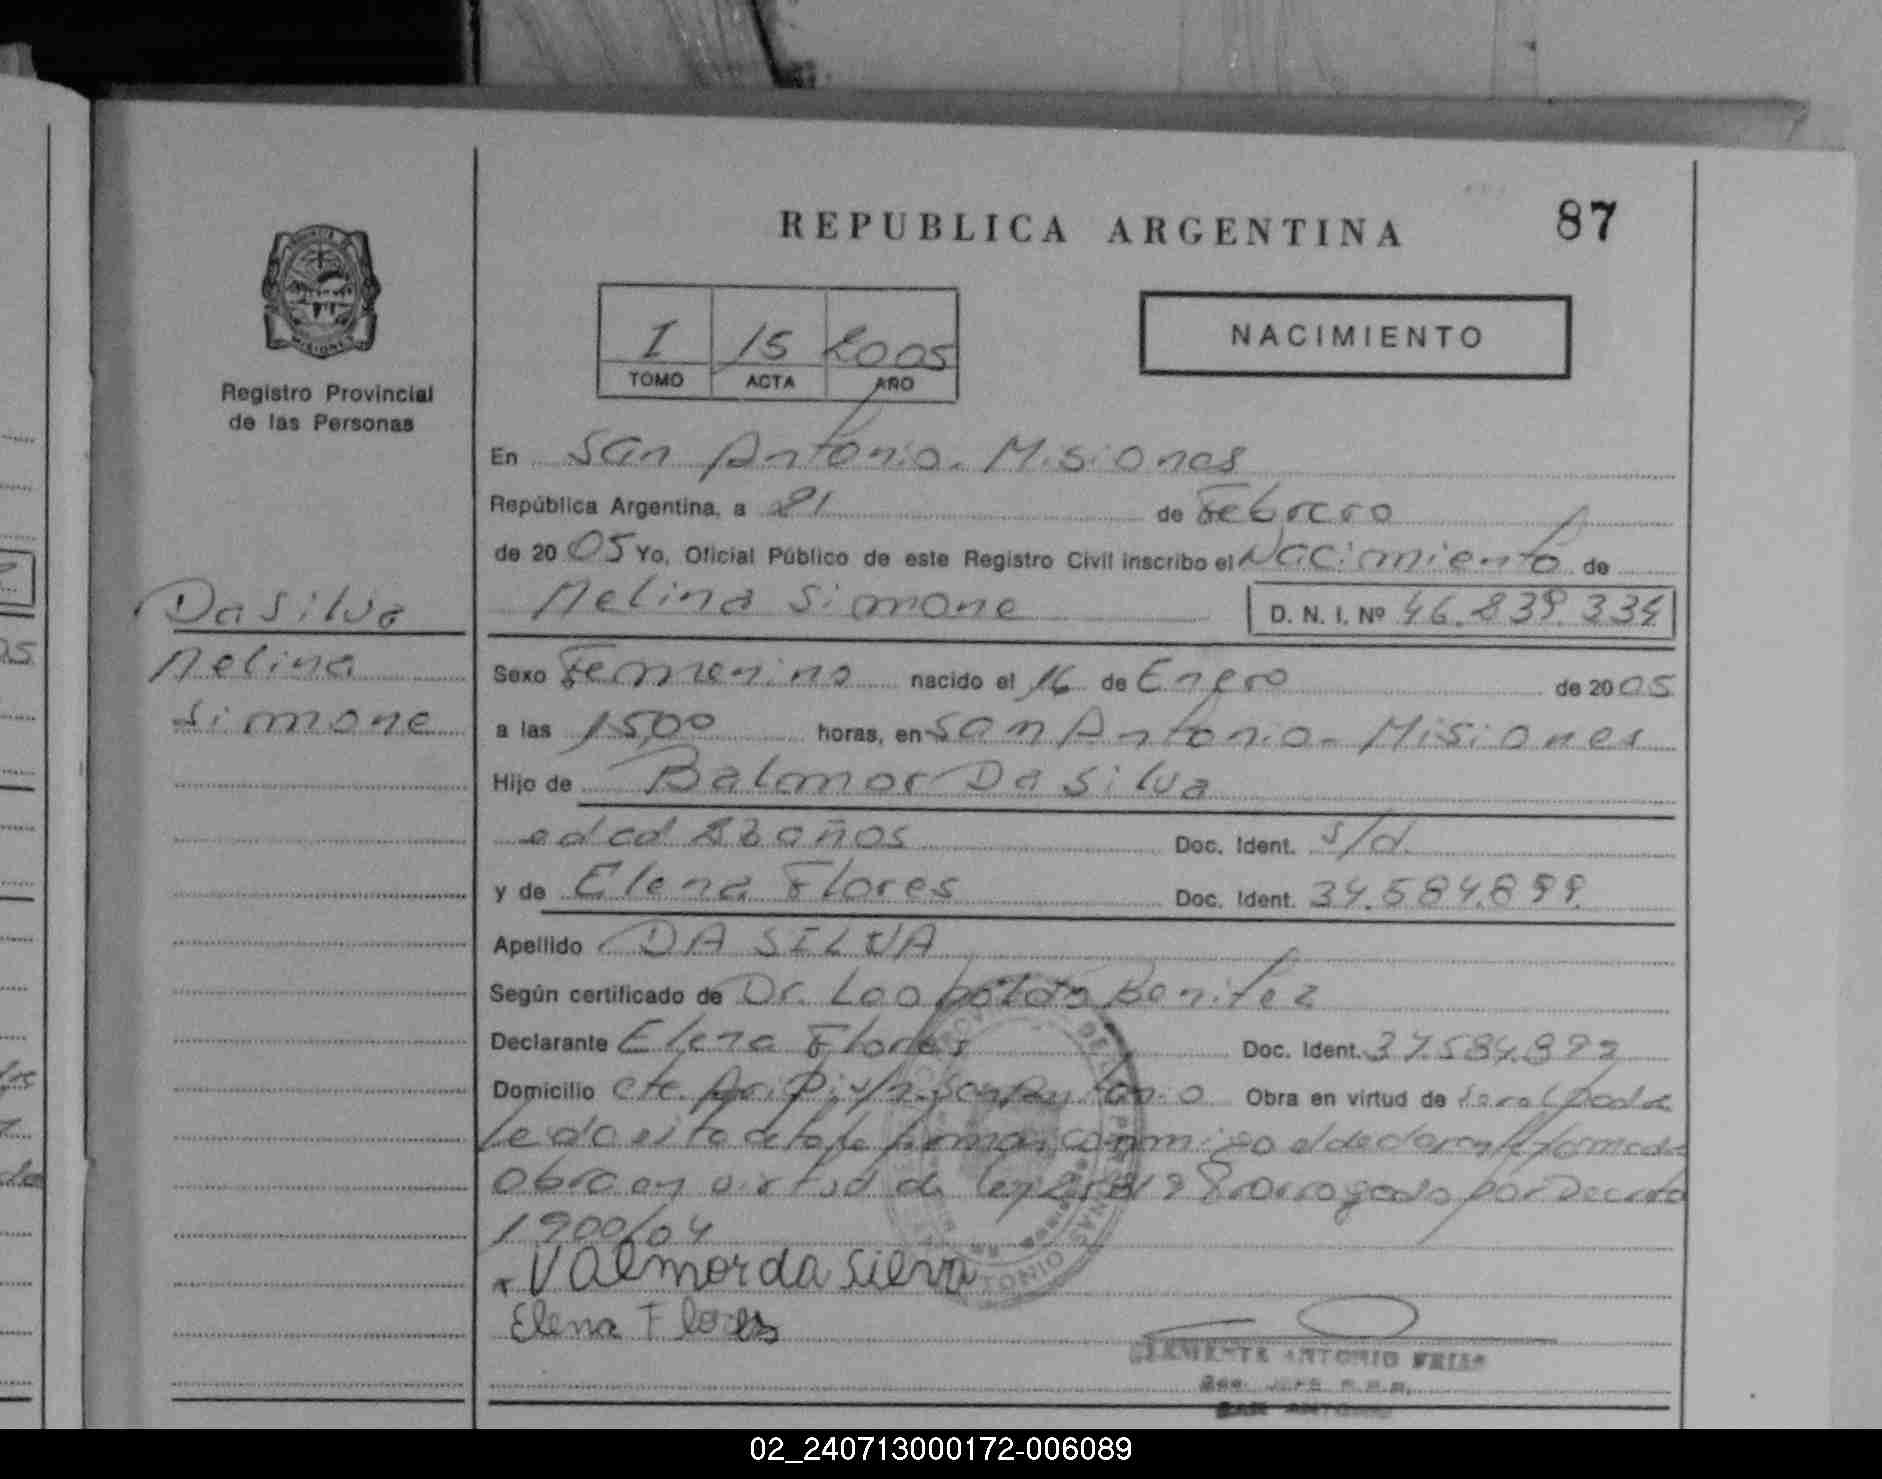 REPUBLICA ARGENTINA
87
I 15 2005
TOMO ACTA AÑO
NACIMIENTO
MISIONES
Registro Provincial
de las Personas
En San Antonio - Misiones
República Argentina, a 21 de Febrero
de 2005 Yo, Oficial Público de este Registro Civil inscribo el Nacimiento de
Melina Simone D. N. I. Nº 46.839.334
Da Silva
Melina
Simone
Sexo Femenino nacido el 16 de Enero de 2005
a las 15,00 horas, en San Antonio - Misiones
Hijo de Balmor Da Silva
edad años Doc. Ident. s/d.
y de Elena Flores Doc. Ident. 34.584.899.
Apellido DA SILVA
Según certificado de Dr. Leopoldo Benitez
Declarante Elena Flores Doc. Ident. 37.584.899
Domicilio San Antonio Obra en virtud de
conmigo el declarante
Obra en virtud de Ley Prorrogado por Decreto
1900/04
Valmor da silva
Elena Flores
CLEMENTE ANTONIO FRIAS
SAN ANTONIO
02_240713000172-006089